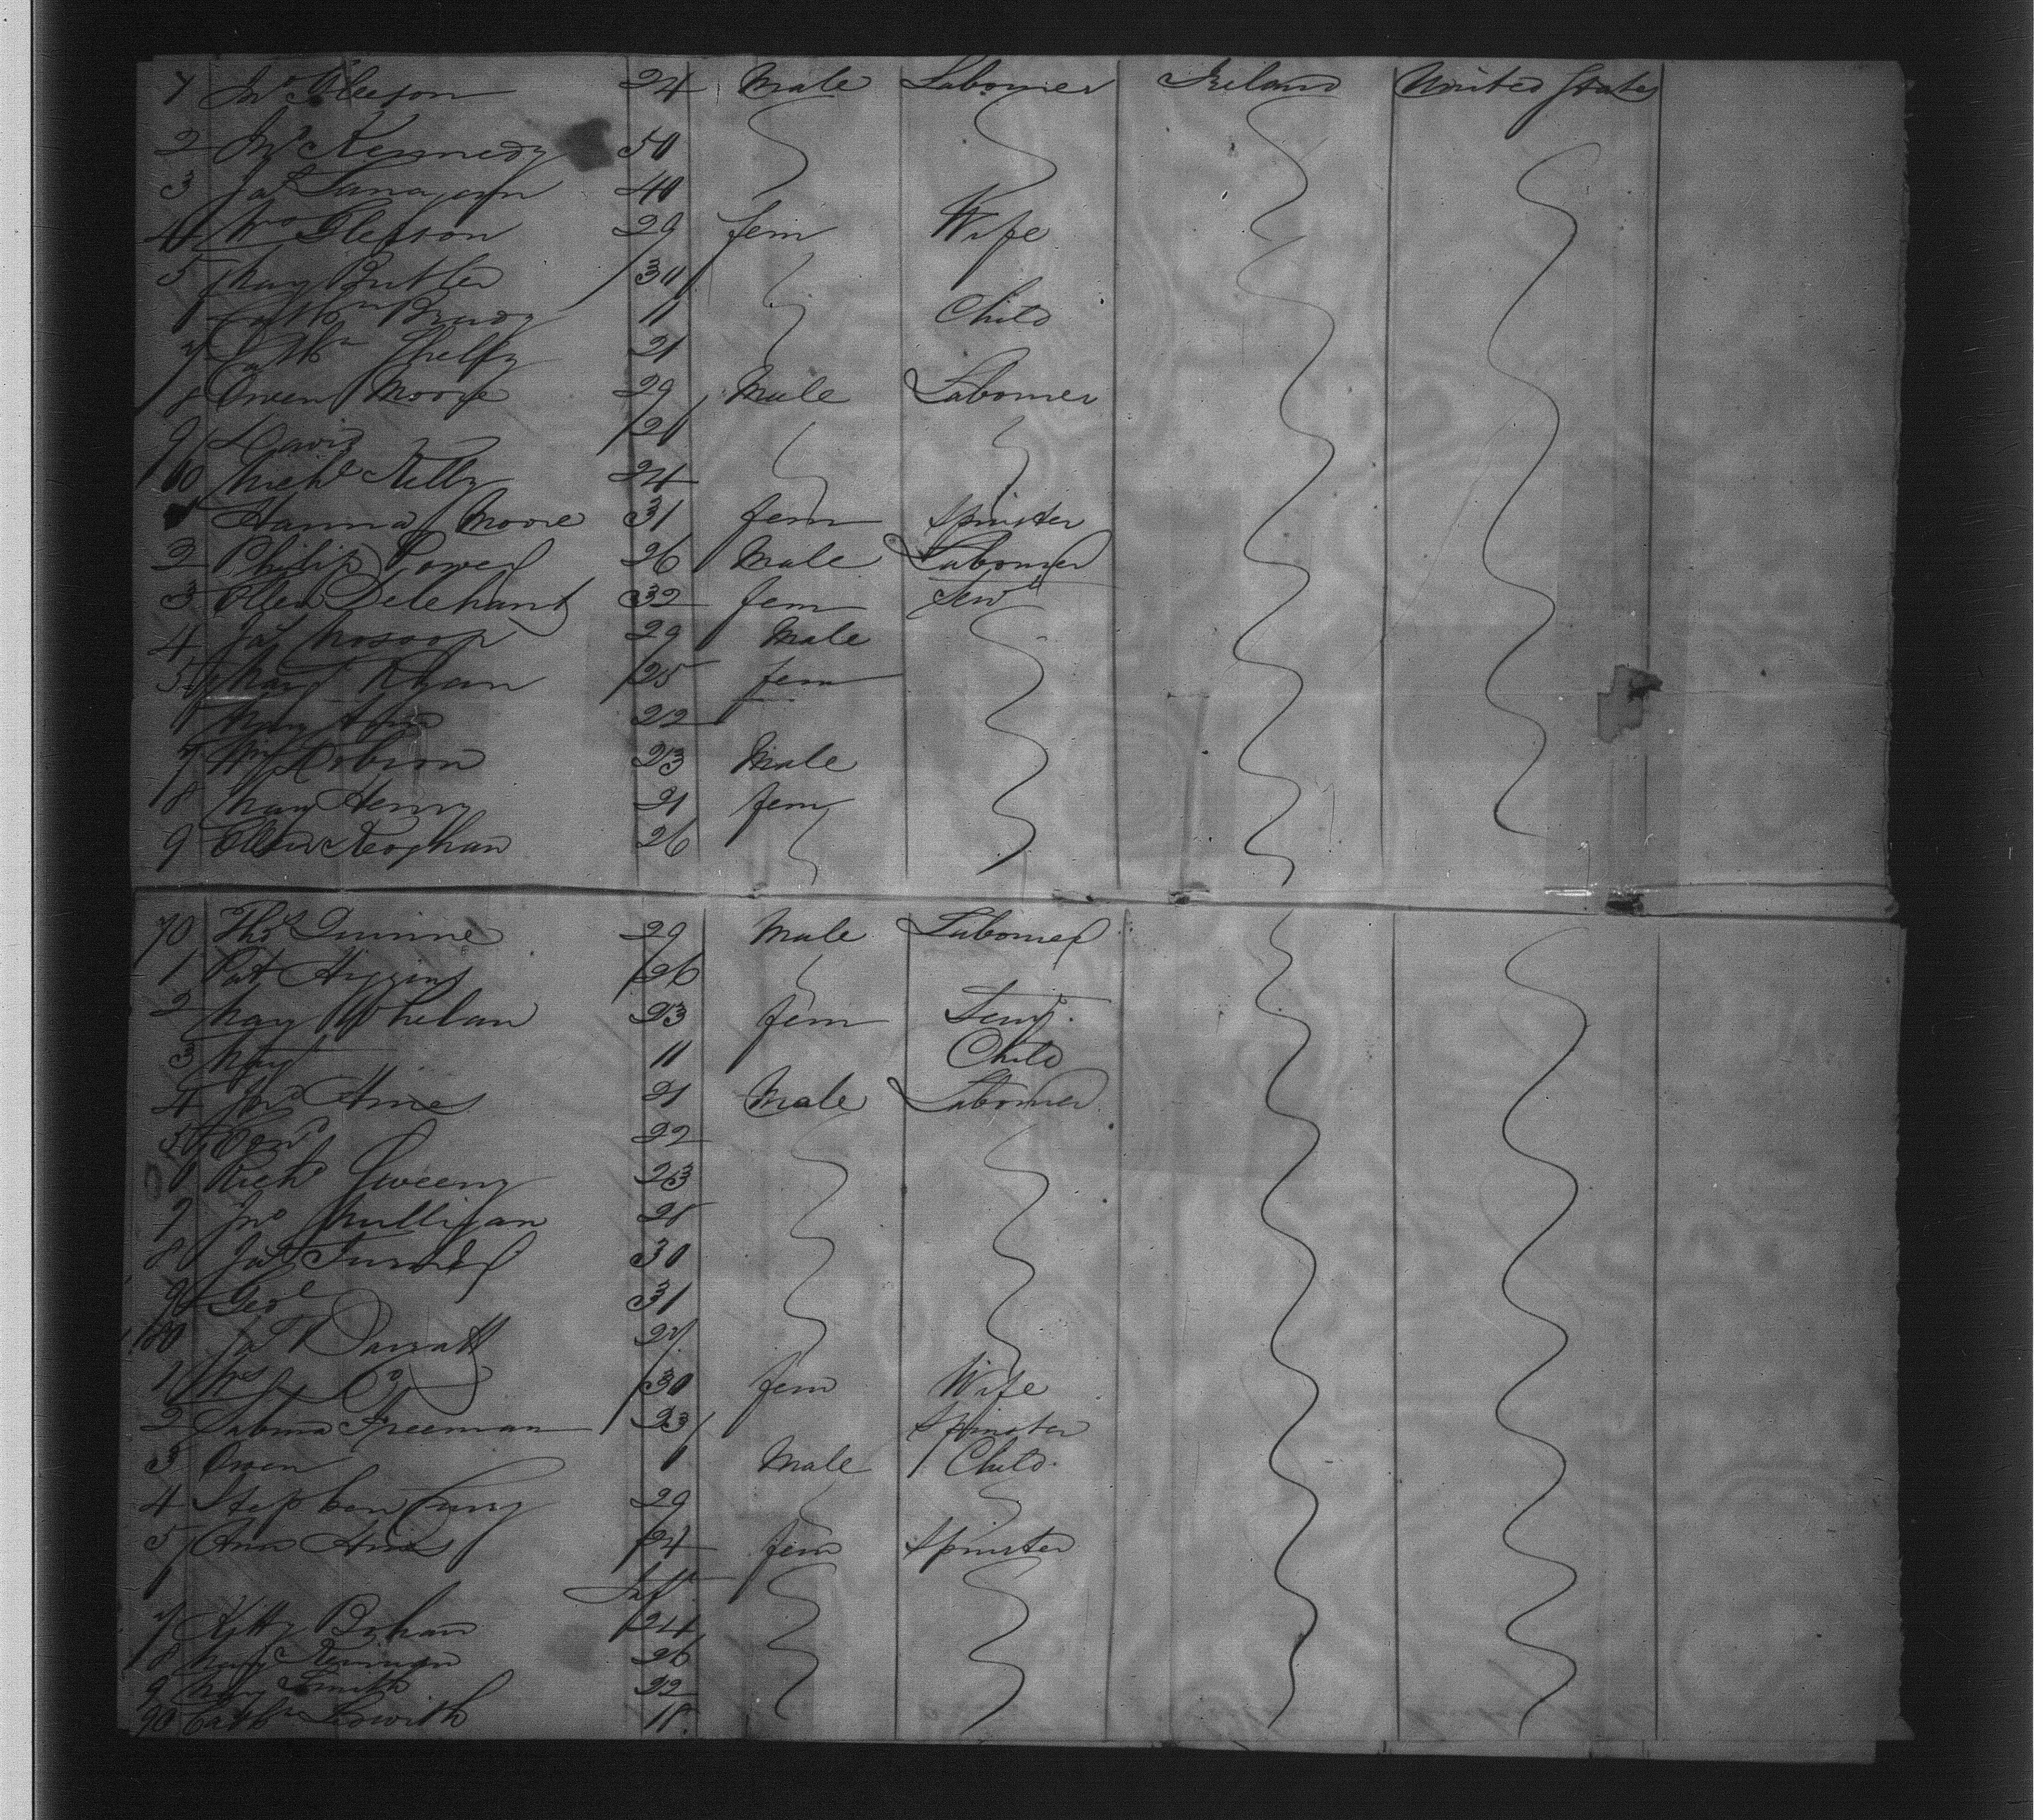 1 Jno Gleeson 24 Male Labourer Ireland United States
2 Jno Kennedy 50
3 Jas Lanagan 40
4 Mrs Gleeson 29 fem Wife
5 Mary Butler 30
6 Cathn Brady 11 Child
7 Cathn Shelly 21
8 Owen Moore 29 Male Labourer
9 Davis 20
60 Michl Kelly 24
1 Hanna Moore 31 fem Spinster
2 Philip Power 26 Male Labourer
3 Ellen Delehant 32 fem Servt
4 Jas 29 Male
5 Mary Ryan 25 fem
6 Mary 22
7 Wm Robson 23 Male
8 Mary Henry 21 fem
9 Ellen Keoghan 26
70 Thos Quinne 29 Male Labourer
1 Pat Higgins 26
2 Mary Whelan 23 fem Servt.
3 Mary 11 Child
4 Jno Hines 21 Male Labourer
5 Edwd 22
6 Richd Sweeny 23
7 Jno Mulligan 28
8 Jas Turner 30
9 Geo 31
80 Jas Barratt 27
1 Mrs Do 30 fem Wife
2 Sabina Freeman 23 Spinster
3 Owen 1 Male Child.
4 Stephen 29
5 Ann Hines 24 fem Spinster
6 Inft
7 Kitty Bohan 24
8 Mary 26
9 Mary Smith 22
90 Cathn 18.